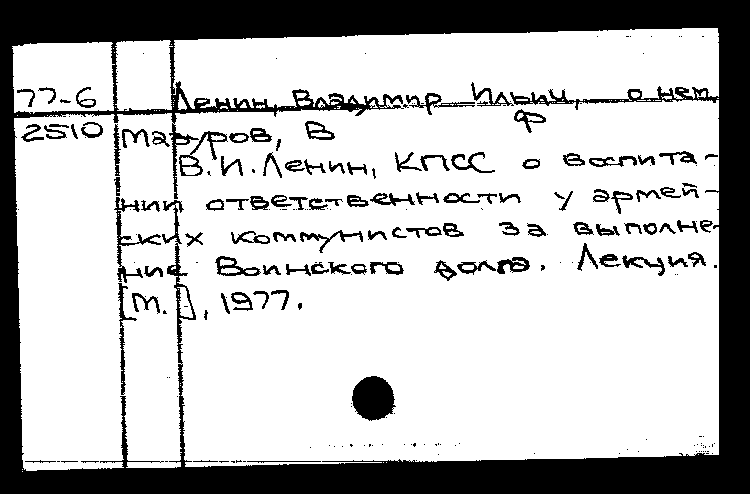 77-6 Ленин, Владимир Ильич, о нем
ф
2510 Мазуров, В
В.И.Ленин, КПСС о воспита-
нии ответственности у армей-
ских коммунистов за выполне-
ние Воинского долга. Лекция.
[М.], 1977.